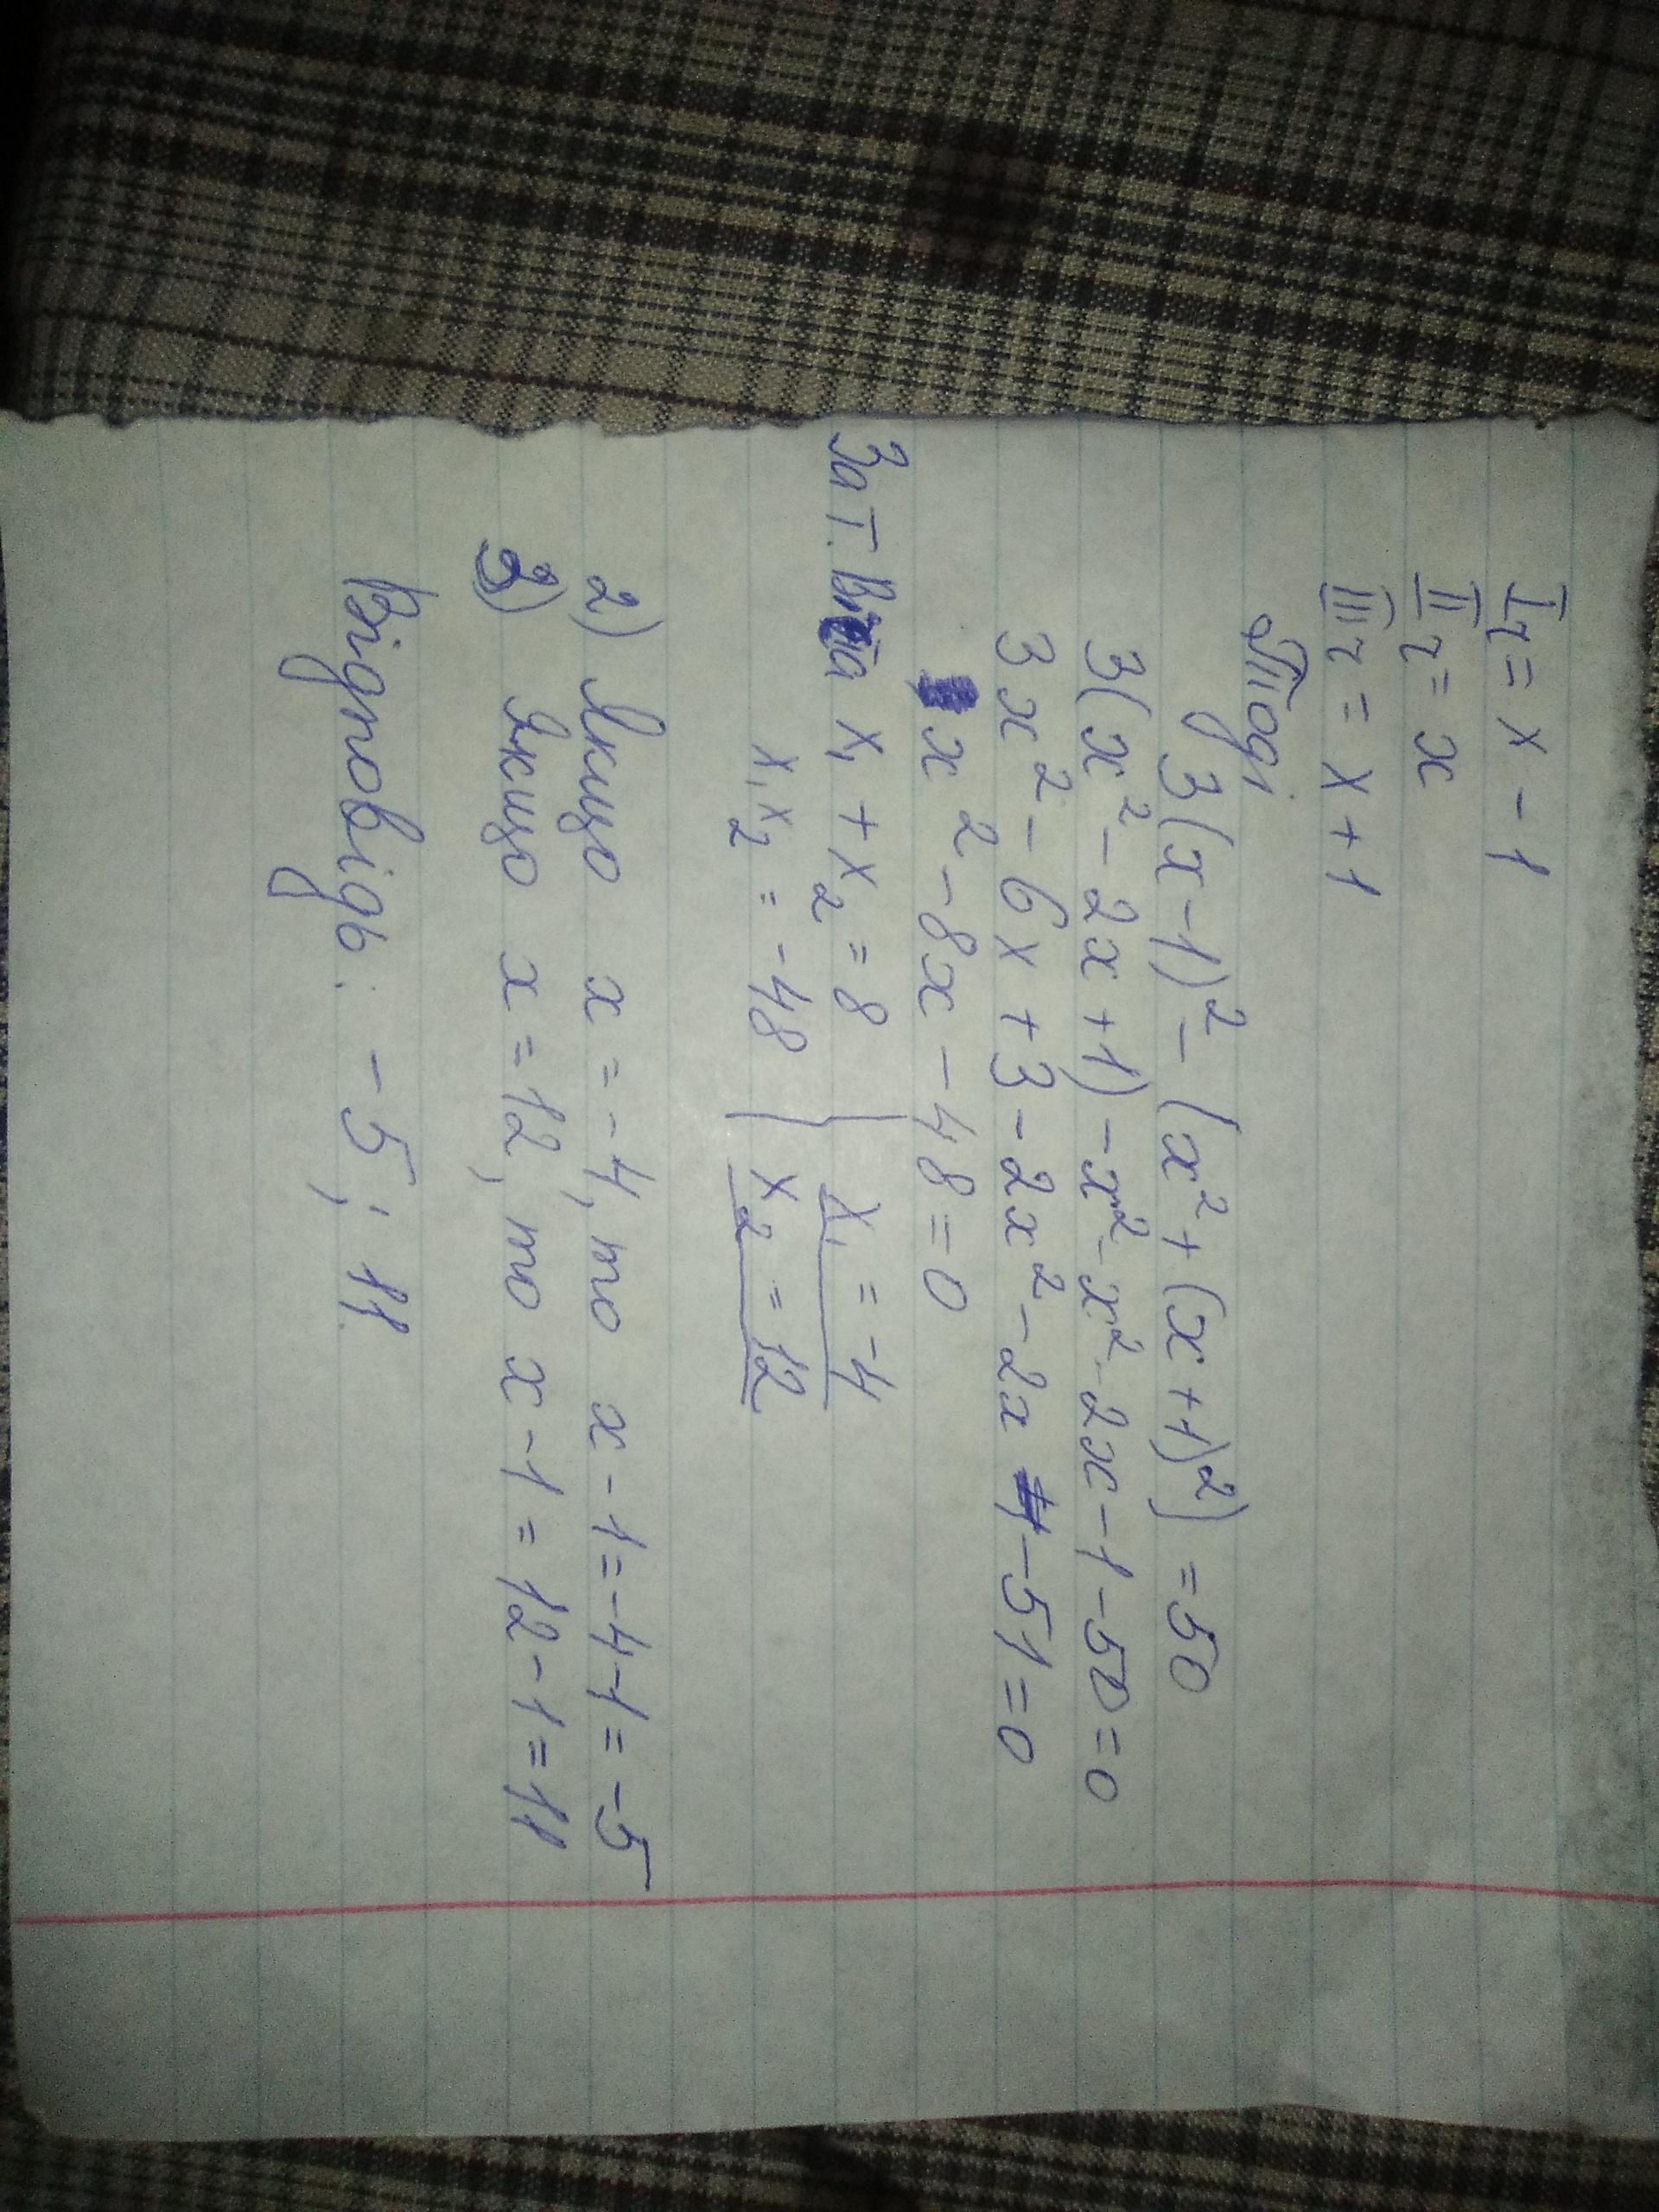 I ч = x - 1
II ч = x
III ч = x + 1
Тоді
3(x-1)² - (x² + (x+1)²) = 50
3(x² - 2x + 1) - x² - x² - 2x - 1 - 50 = 0
3x² - 6x + 3 - 2x² - 2x - 51 = 0
x² - 8x - 48 = 0
За т. Вієта x₁ + x₂ = 8 } x₁ = -4
x₁x₂ = -48 } x₂ = 12
2) Якщо x = -4, то x - 1 = -4 - 1 = -5
3) Якщо x = 12, то x - 1 = 12 - 1 = 11
Відповідь: -5; 11.